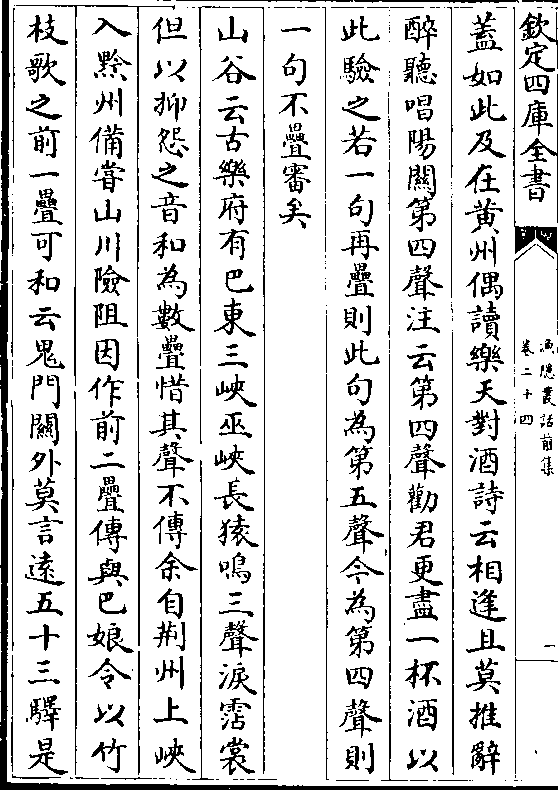 欽定四庫全書
漁隱叢話前集
卷二十四
一
蓋如此及在黄州偶讀樂天對酒詩云相逢且莫推辭
醉聽唱陽關第四聲注云第四聲勸君更盡一杯酒以
此驗之若一句再疊則此句為第五聲今為第四聲則
一句不疊審矣
山谷云古樂府有巴東三峽巫峽長猿鳴三聲淚霑裳
但以抑怨之音和為數疊惜其聲不傳余自荆州上峽
入黔州備嘗山川險阻因作前二疊傳與巴娘令以竹
枝歌之前一疊可和云鬼門關外莫言遠五十三驛是